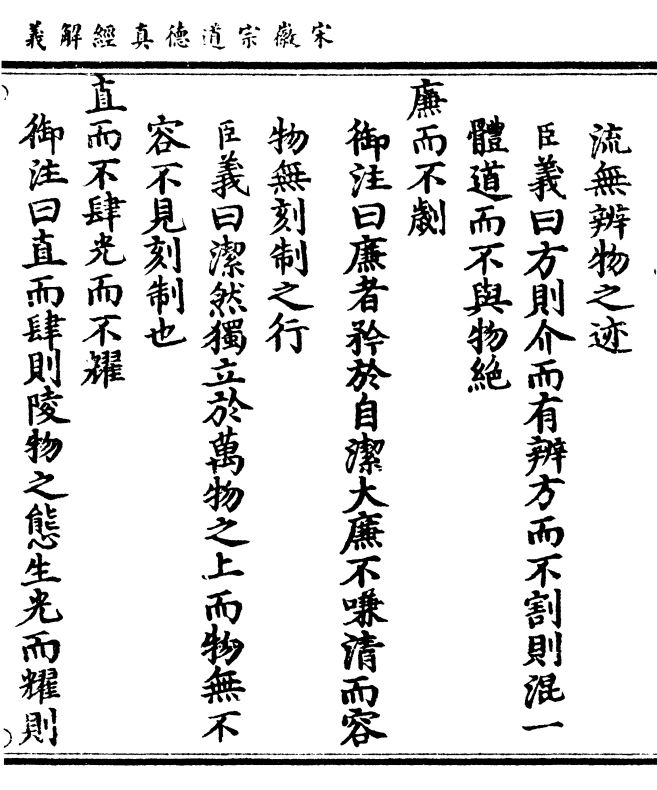 宋徽宗道德真經解義
流無辨物之迹
臣義曰方則介而有辨方而不割則混一
體道而不與物絕
廉而不劌
御注曰廉者矜於自潔大廉不嗛清而容
物無刻制之行
臣義曰潔然獨立於萬物之上而物無不
容不見刻制也
直而不肆光而不耀
御注曰直而肆則陵物之態生光而耀則